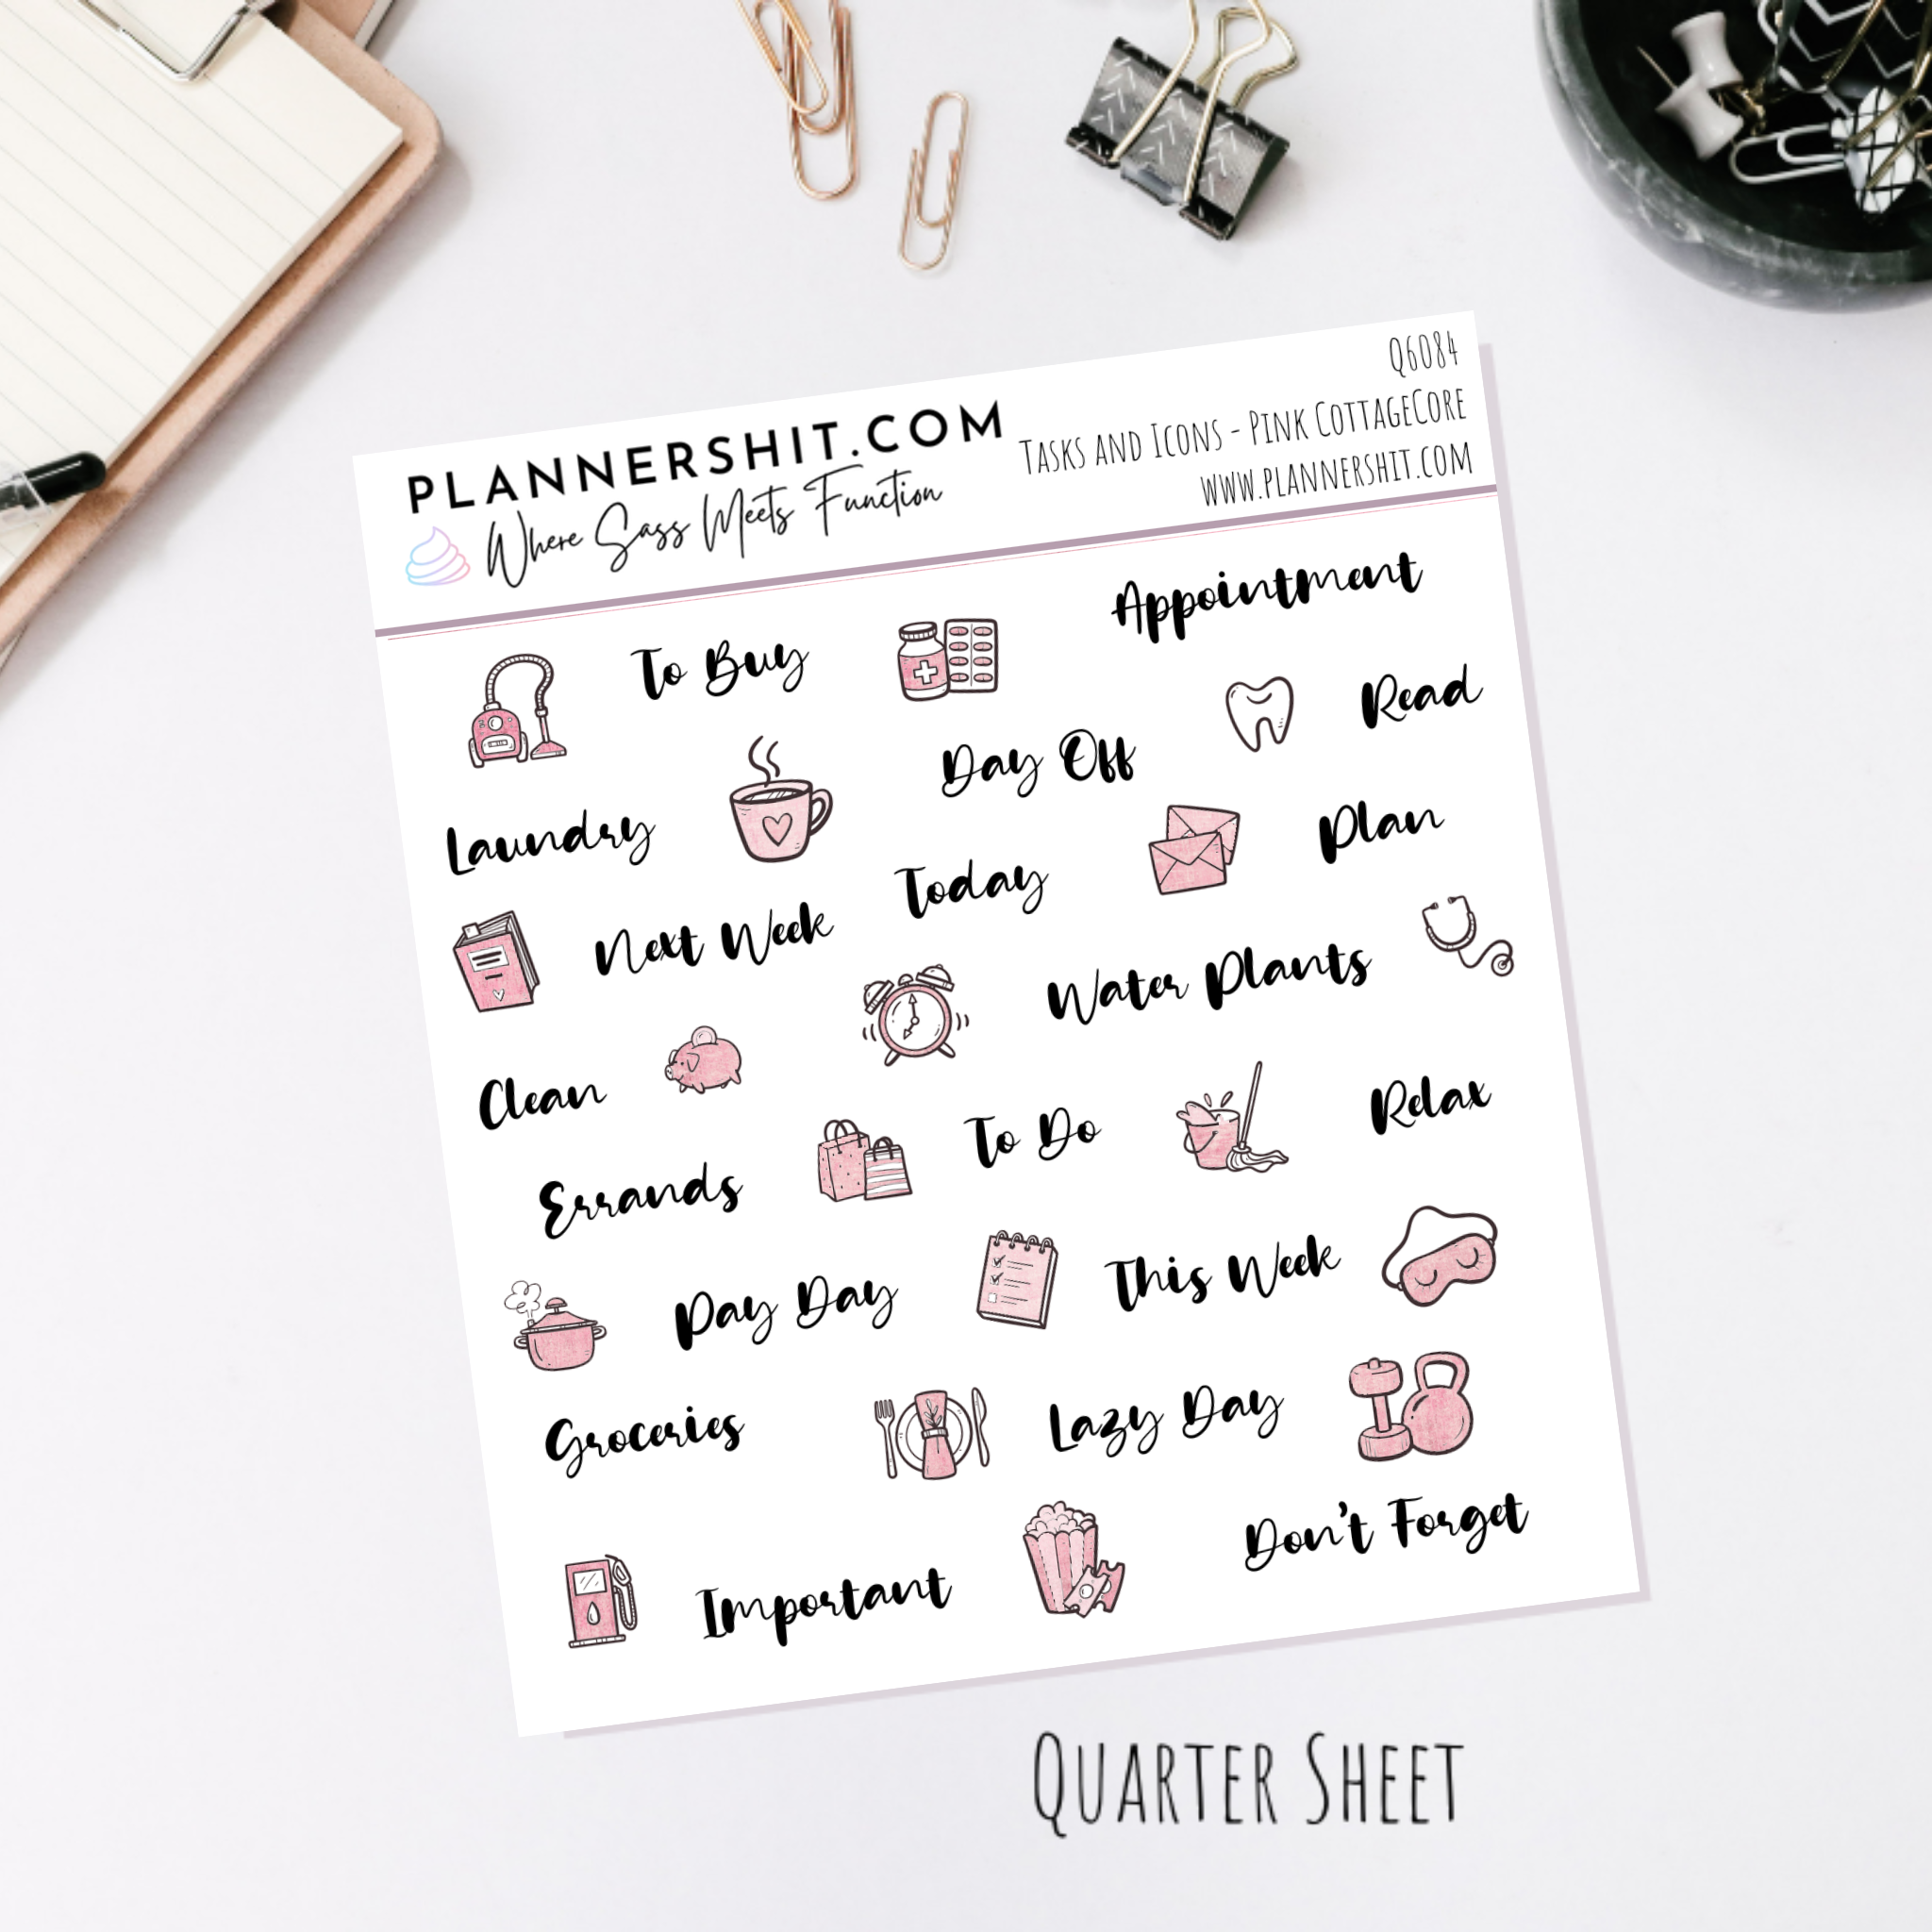 PLANNERSHIT.COM
Where Sass Meets Function
Q6084
Tasks and Icons - Pink CottageCore
www.plannershit.com
To Buy
Appointment
Read
Day Off
Laundry
Plan
Today
Next Week
Water Plants
Clean
To Do
Relax
Errands
This Week
Pay Day
Lazy Day
Groceries
Don't Forget
Important
Quarter Sheet